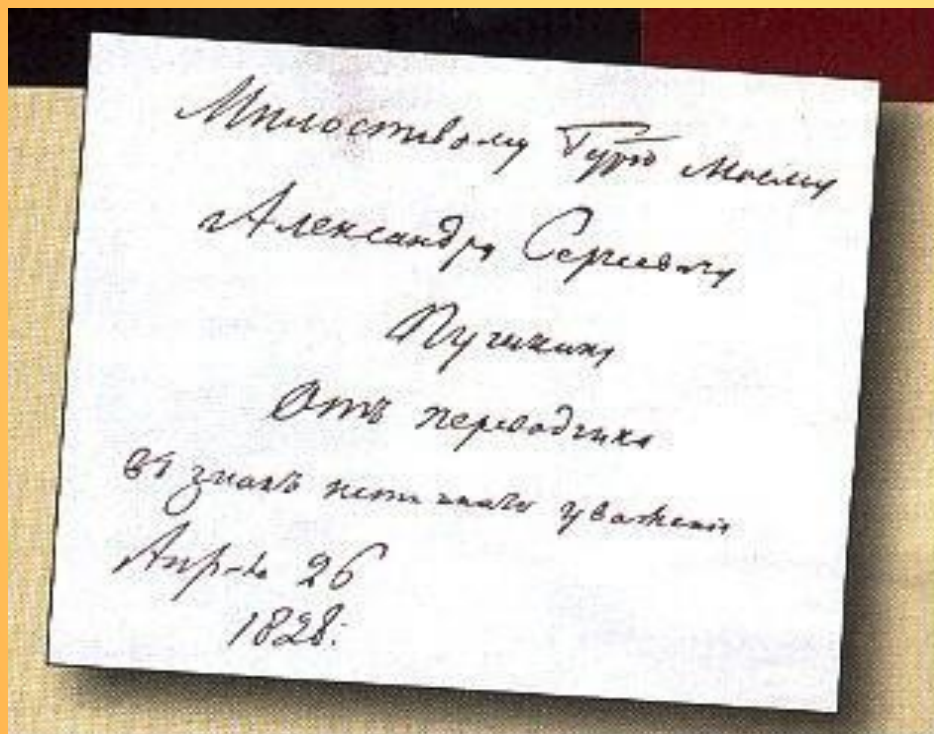 Милостивому Гдрю моему
Александру Сергеевичу
Пушкину
Отъ переводчика
въ знакъ истиннаго уваженія
Апр-ля 26
1828: